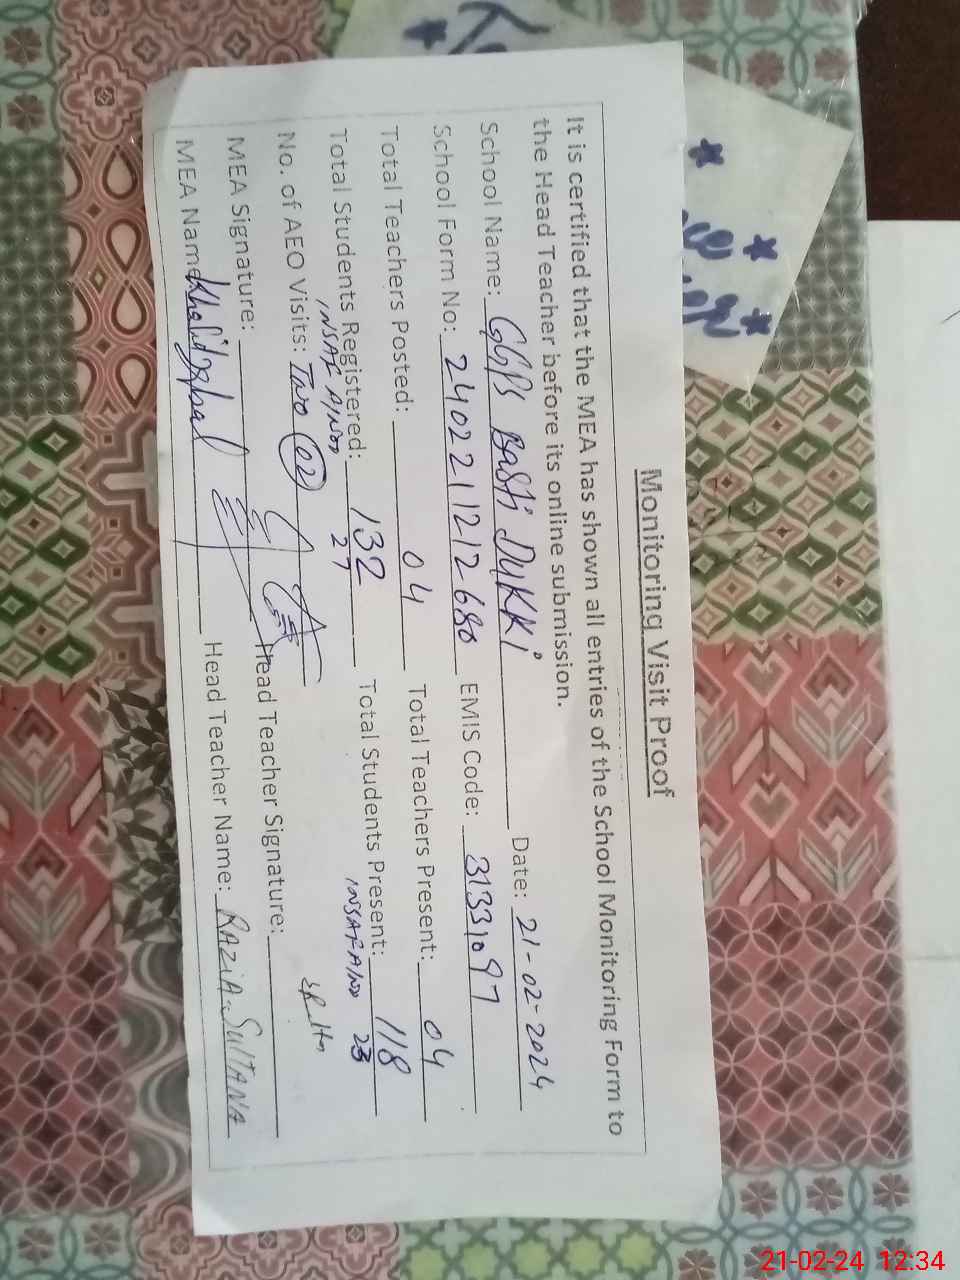 Monitoring Visit Proof
It is certified that the MEA has shown all entries of the School Monitoring Form to
the Head Teacher before its online submission.
School Name: GGPS Basti DUKKi Date: 21-02-2024
School Form No: 240221212680 EMIS Code: 31331097
Total Teachers Posted: 04 Total Teachers Present: 04
Total Students Registered: 132 Total Students Present: 118
INSAF AFNOON 27 INSAF ANN 23
No. of AEO Visits: Two 02
MEA Signature: Head Teacher Signature:
MEA Name: Khalid Iqbal Head Teacher Name: RAZiA-SULTANA
21-02-24 12:34